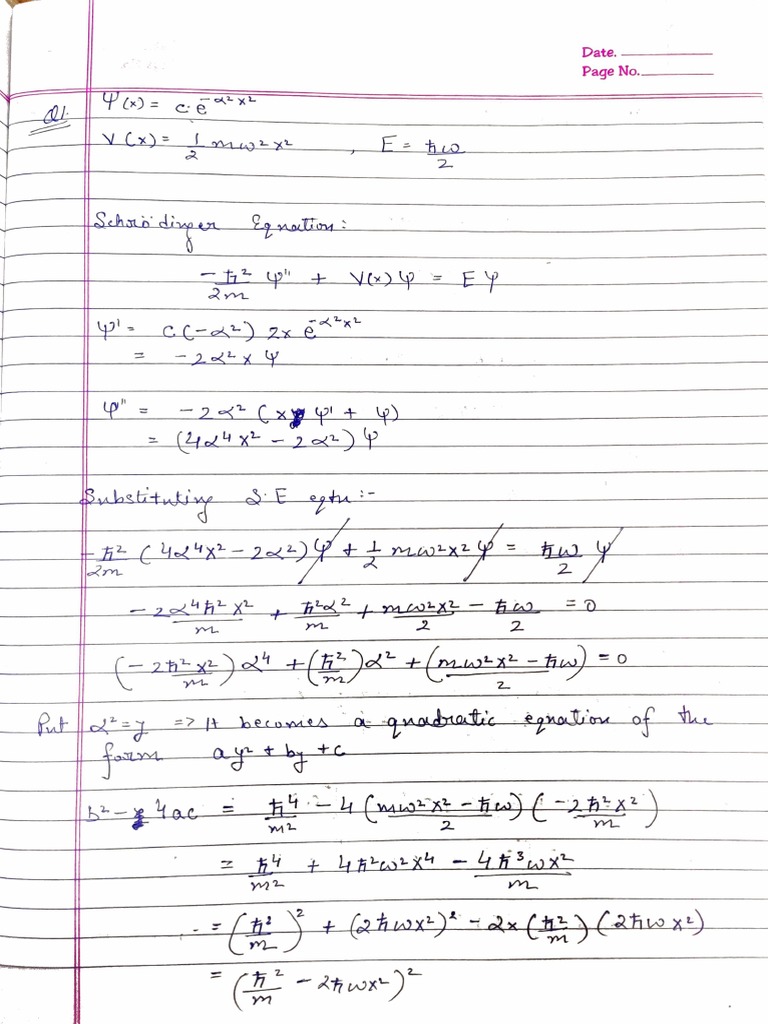 Date.
Page No.
Q1. Ψ(x) = c.e^{-α²x²}
V(x) = 1/2 mω²x² , E = ħω/2
Schrödinger Equation:
-ħ²/2m Ψ'' + V(x)Ψ = EΨ
Ψ' = c(-α²) 2x e^{-α²x²}
= -2α² x Ψ
Ψ'' = -2α² (x Ψ' + Ψ)
= (4α⁴x² - 2α²) Ψ
Substituting S.E eqtn:-
-ħ²/2m (4α⁴x² - 2α²) Ψ + 1/2 mω²x² Ψ = ħω/2 Ψ
-2α⁴ħ²x²/m + ħ²α²/m + mω²x²/2 - ħω/2 = 0
(-2ħ²x²/m) α⁴ + (ħ²/m) α² + (mω²x² - ħω)/2 = 0
Put α² = y => It becomes a quadratic equation of the
form ay² + by + c
b² - 4ac = ħ⁴/m² - 4 (mω²x² - ħω)/2 (-2ħ²x²/m)
= ħ⁴/m² + 4ħ²ω²x⁴ - 4ħ³ωx²/m
= (ħ²/m)² + (2ħωx²)² - 2x(ħ²/m)(2ħωx²)
= (ħ²/m - 2ħωx²)²